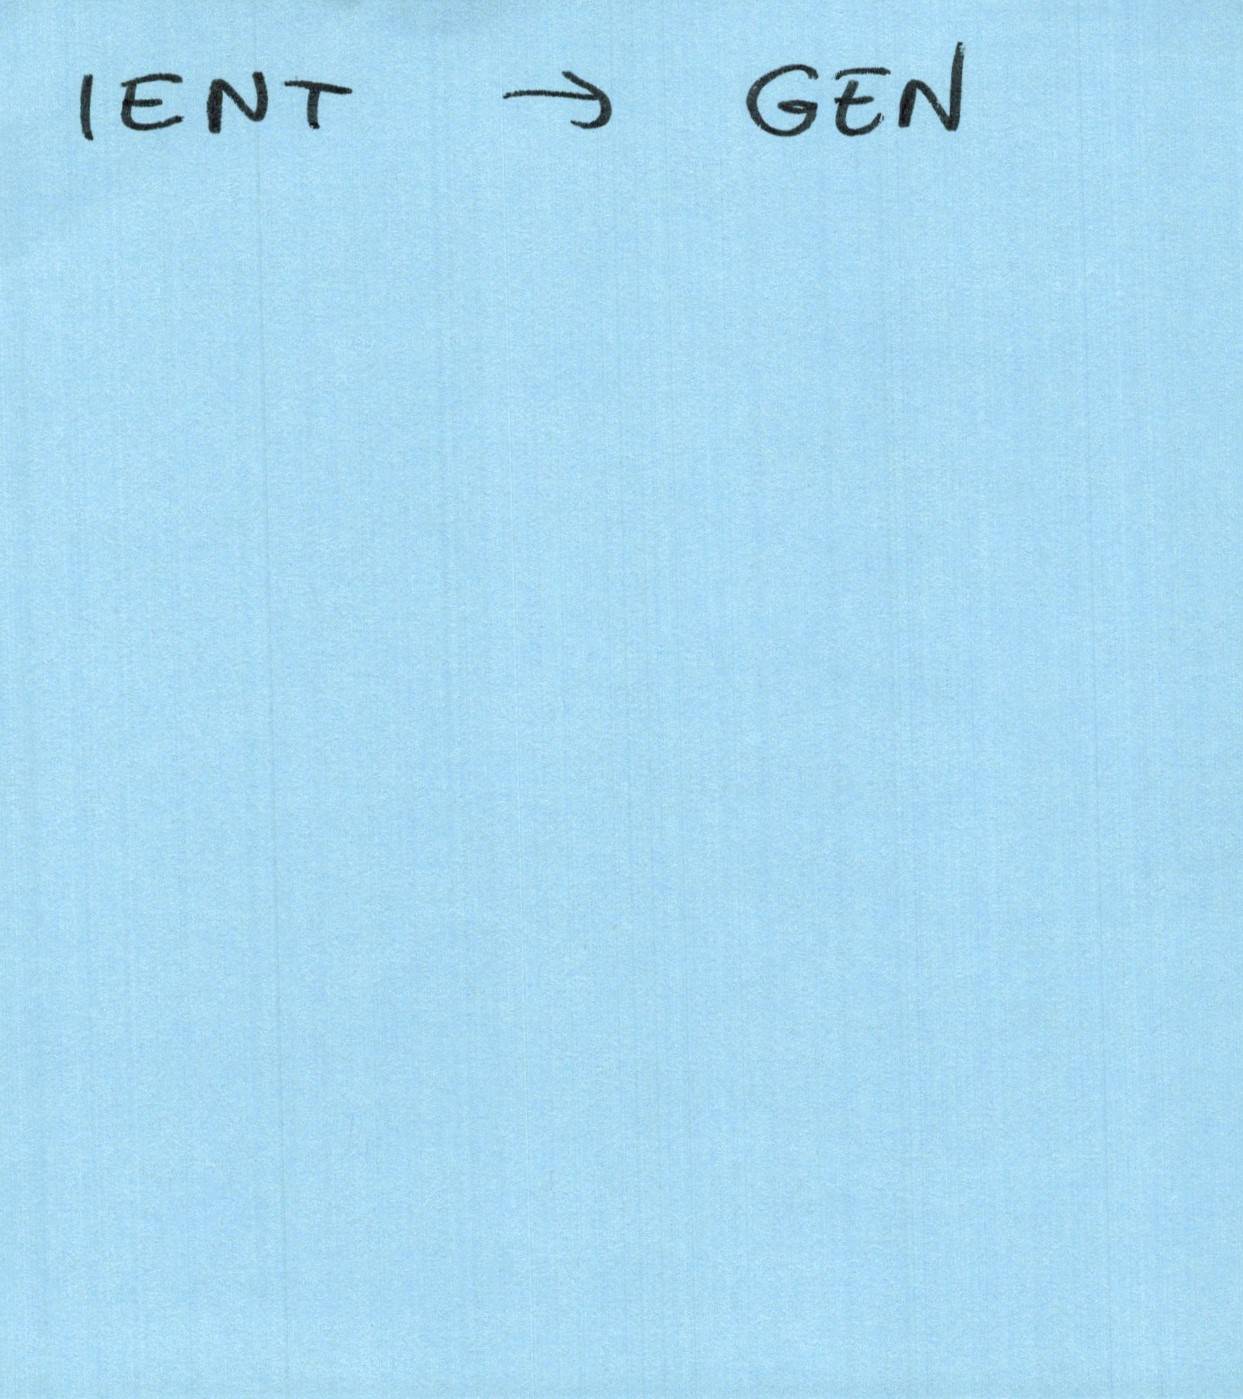 IENT → GEN